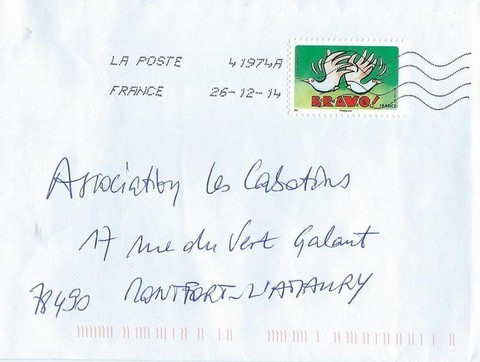 LA POSTE 41974A
FRANCE 26-12-14
BRAVO!
FRANCE
Association les Cabotins
17 rue du Vert Galant
78490 MONTFORT-L'AMAURY